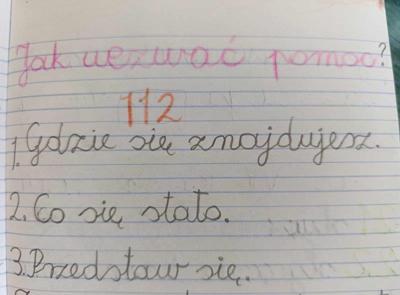 Jak wezwać pomoc?
112
1. Gdzie się znajdujesz.
2. Co się stało.
3. Przedstaw się.